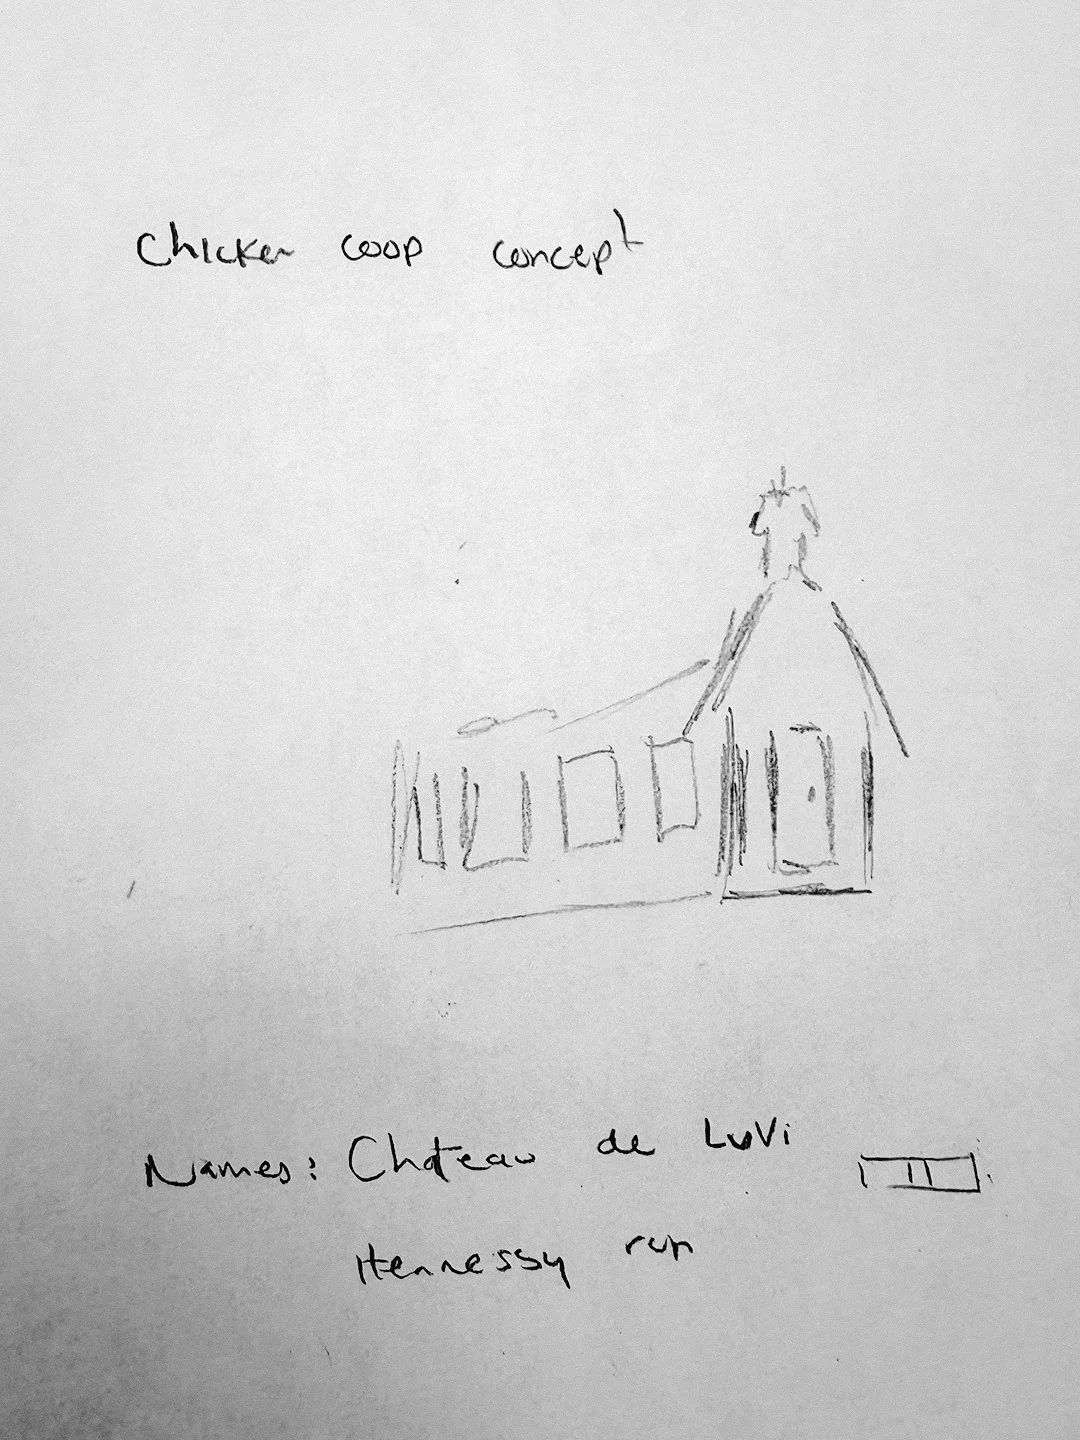 Chicken coop concept
Names: Chateau de LuVi
Hennessy run